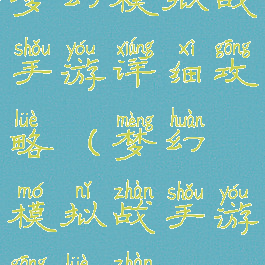 梦幻模拟战
shǒu yóu xiáng xì gōng
手游详细攻
lüè mèng huàn
略（梦幻
mó nǐ zhàn shǒu yóu
模拟战手游
gōng lüè zhàn